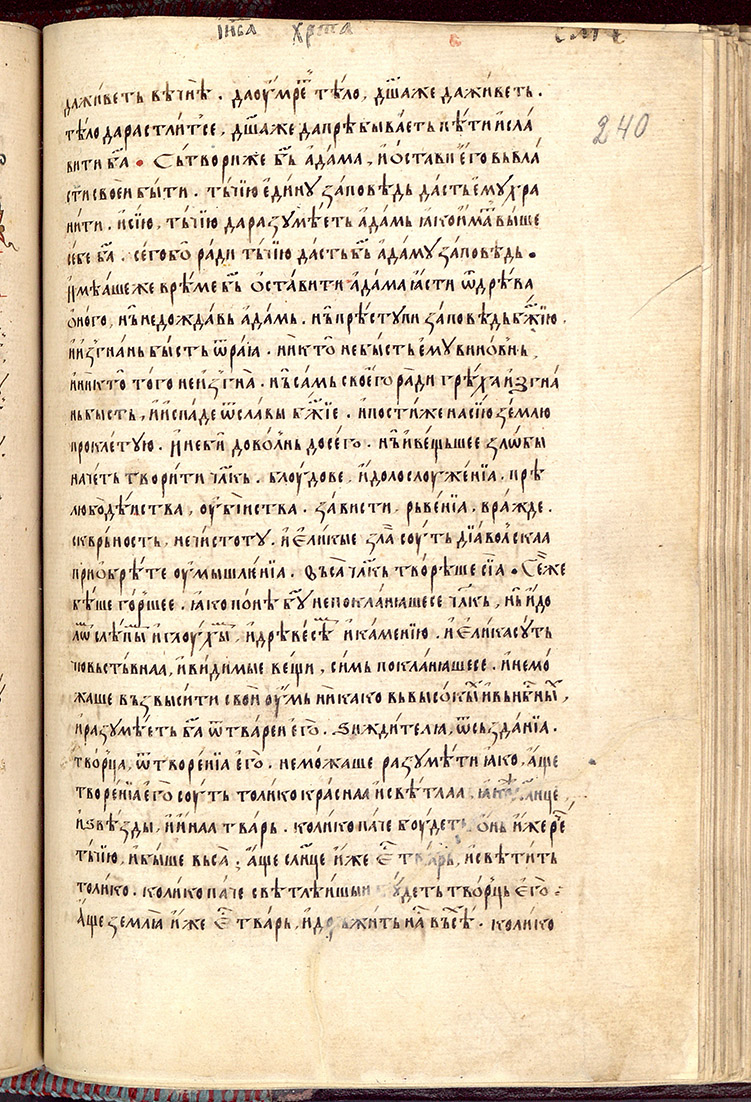 і҆н҃са хрⷭта
240
да живеть вѣчнѣ . да оу҆мреⷮ тѣло , дш҃а же да живеть .
тѣло да растлитсе , дш҃а же да прѣбываеть пѣти и҆ сла
вити ба҃ . Сьтвори же бь҃ а҆дама , и҆ ѡ҆стави є҆го вь вла
сти своеи быти . тьчїю є҆дину заповѣдь дасть є҆му хра
нити . и҆ сїю , тьчїю да разумѣеть а҆дамь ꙗ҆ко и҆маⷮ выше
себе ба҃ . сего бѡ ради тьчїю дасть бь҃ а҆даму заповѣдь .
И҆мѣаше же врѣме бь҃ ѡ҆ставити а҆дама ꙗ҆сти ѿ дрѣва
ѻ҆ного , нь не дождавь а҆дамь . нь прѣступи заповѣдь бж҃їю .
и҆ и҆згнань бысть ѿ раꙗ . никтѡ не бысть є҆му виновнь ,
и҆ никтѡ того не и҆згна . нь самь своего ради грѣха и҆згна
нь бысть , и҆ и҆спаде ѿ славы бж҃їе . и҆ постиже на сїю землю
проклетую . И҆ не би довѡлнь до сего . нь и҆ вещьшее злѡбы
начеть творити чл҃кь . блоудове , и҆долослоуженїа . прѣ
любодѣиства , оу҆бїиства . зависти . рьвенїа . вражде .
скврьность , нечистоту . и҆ є҆ликые злаа соуть дїаволскаа
приѡ҆брѣте оу҆мышленїа . вьса чл҃кь твораше сїа . Се же
бѣше горшее . ꙗ҆ко по нѥ бг҃у не покланꙗшесе чл҃кь , нь и҆до
лѡⷨ слѣпыⷨ и҆ глоухыⷨ , и҆ дрѣвесеⷨ и҆ каменїю . и҆ є҆лика суть
чювьствнаа , и҆ видимые вещи , симь покланꙗшесе . и҆ не мо
жаше вьзвысити свои оу҆мь никако вь высокыⷯ и҆ вь нбⷭныⷯ ,
и҆ разумѣеть ба҃ ѿ твареи є҆го . Ѕиждителꙗ , ѿ сьзданїа .
творца , ѿ творенїа є҆го . не можаше разумѣти ꙗ҆ко , а҆ще
творенїа є҆го соуть толико краснаа и҆ свѣтлаа слн҃це ,
и҆ ѕвѣзды , и҆ и҆наа тварь . колико паче боудеть ѻ҆нь и҆же
тьчїю , и҆ выше вьса ; а҆ще слн҃це и҆же єⷭ҇ тварь , и҆ свѣтить
толико . колико паче свѣтлѣишыи боудеть творць є҆го .
А҆ще землꙗ и҆же єⷭ҇ тварь , и҆ дрьжить на вьсѣ . колико